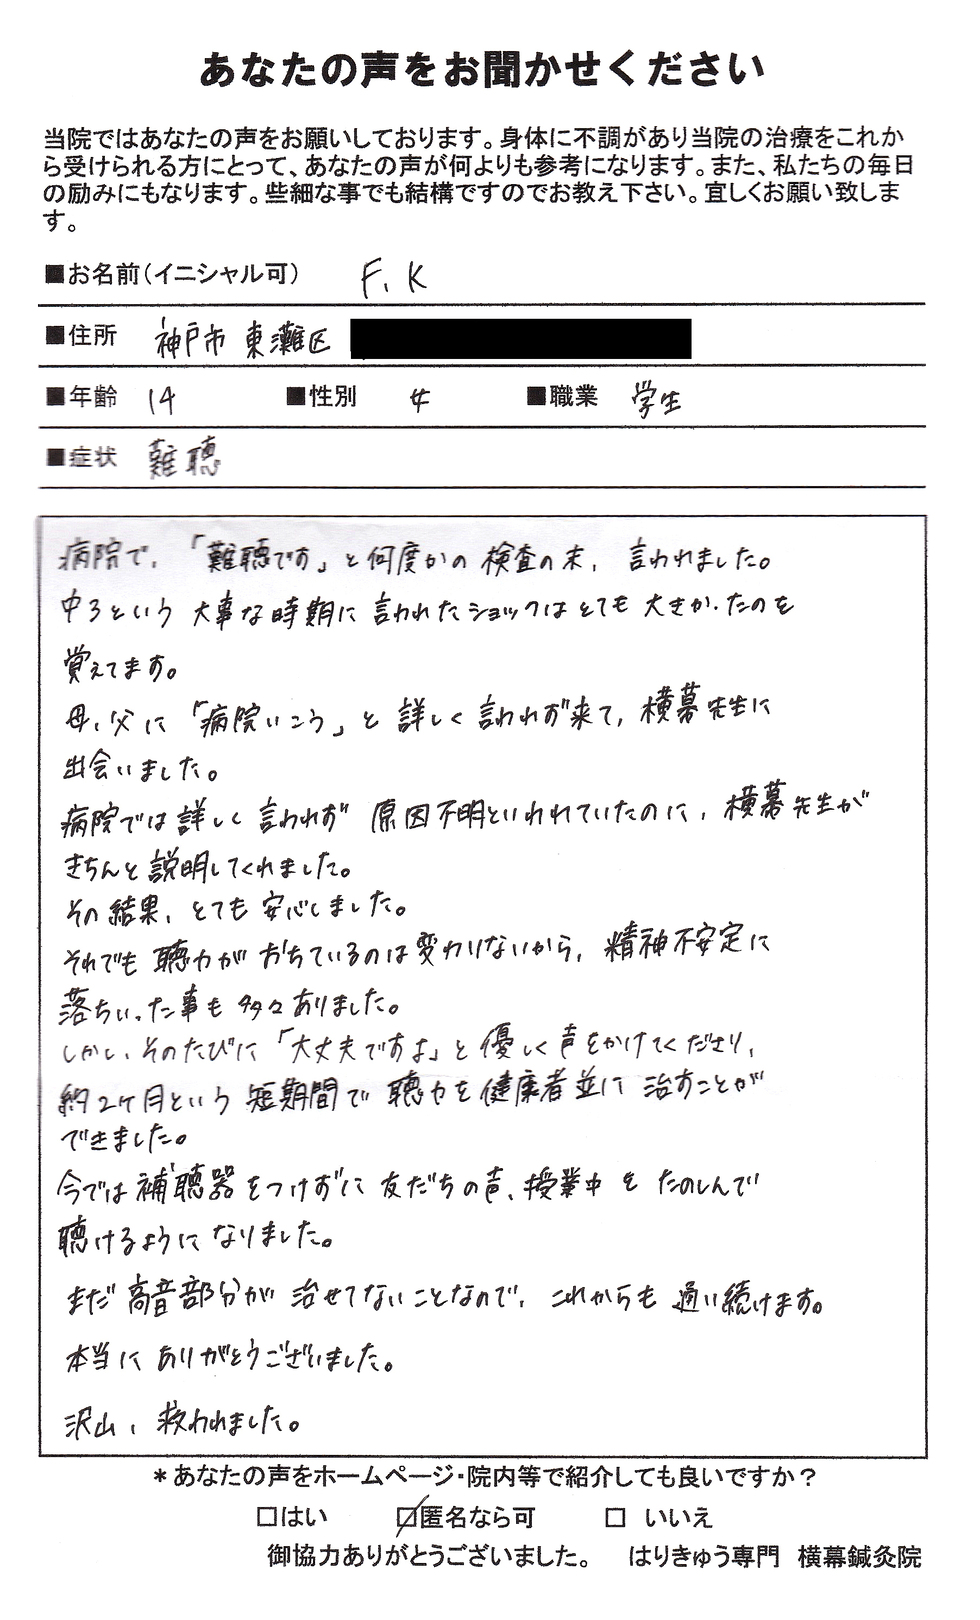 あなたの声をお聞かせください
当院ではあなたの声をお願いしております。身体に不調があり当院の治療をこれか
ら受けられる方にとって、あなたの声が何よりも参考になります。また、私たちの毎日
の励みにもなります。些細な事でも結構ですのでお教え下さい。宜しくお願い致しま
す。
■お名前(イニシャル可) F.K
■住所 神戸市 東灘区
■年齢 14 ■性別 女 ■職業 学生
■症状 難聴
病院で、「難聴です」と何度かの検査の末、言われました。
中3という大事な時期に言われたショックはとても大きかったのを
覚えてます。
母、父に「病院いこう」と詳しく言われず来て、横幕先生に
出会いました。
病院では詳しく言われず原因不明といわれていたのに、横幕先生が
きちんと説明してくれました。
その結果、とても安心しました。
それでも聴力がおちているのは変わりないから、精神不安定に
落ちいった事も多々ありました。
しかし、そのたびに「大丈夫ですよ」と優しく声をかけてくださり、
約2ヶ月という短期間で聴力を健康者並に治すことが
できました。
今では補聴器をつけずに友だちの声、授業中をたのしんで
聴けるようになりました。
まだ高音部分が治せてないことなので、これからも通い続けます。
本当にありがとうございました。
沢山、救われました。
*あなたの声をホームページ・院内等で紹介しても良いですか?
□はい ☑匿名なら可 □ いいえ
御協力ありがとうございました。 はりきゅう専門 横幕鍼灸院